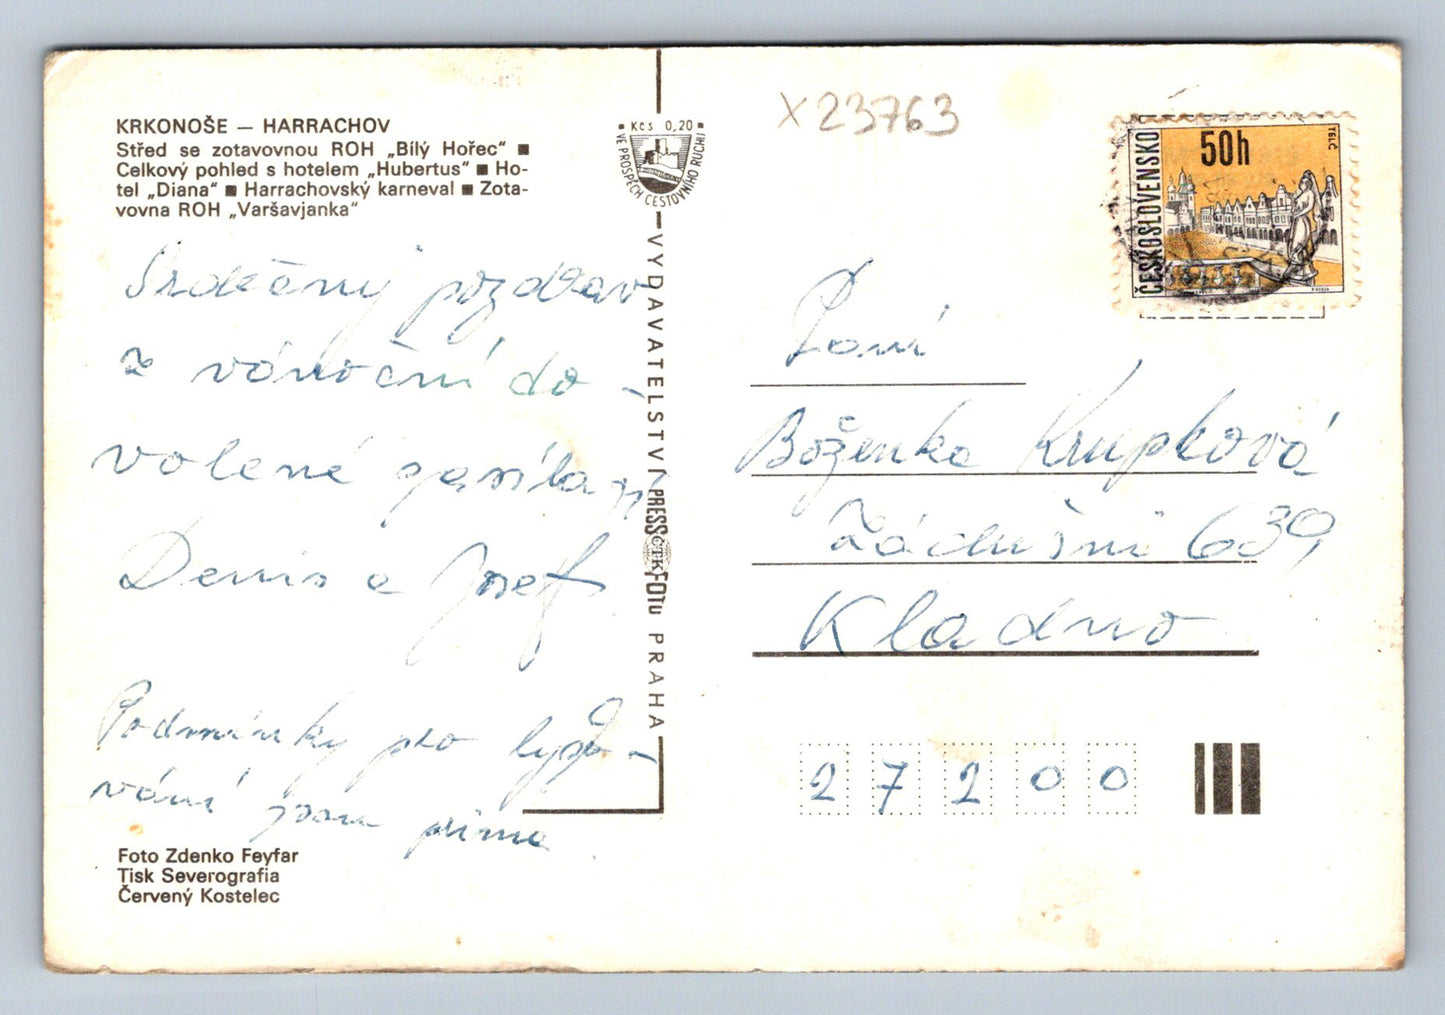 KRKONOŠE — HARRACHOV
Střed se zotavovnou ROH „Bílý Hořec“ ■
Celkový pohled s hotelem „Hubertus“ ■ Ho-
tel „Diana“ ■ Harrachovský karneval ■ Zota-
vovna ROH „Varšavjanka“
Srdečný pozdrav
z vánoční do-
volené zasílají
Denis a Josef
Podmínky pro lyžo-
vání jsou prima.
Foto Zdenko Feyfar
Tisk Severografia
Červený Kostelec
Kčs 0,20
VE PROSPĚCH CESTOVNÍHO RUCHU
VYDAVATELSTVÍ PRESSFOTO PRAHA
ČTK
X23763
50h
ČESKOSLOVENSKO
TELČ
Paní
Boženka Krupková
Zádušní 639
Kladno
27200